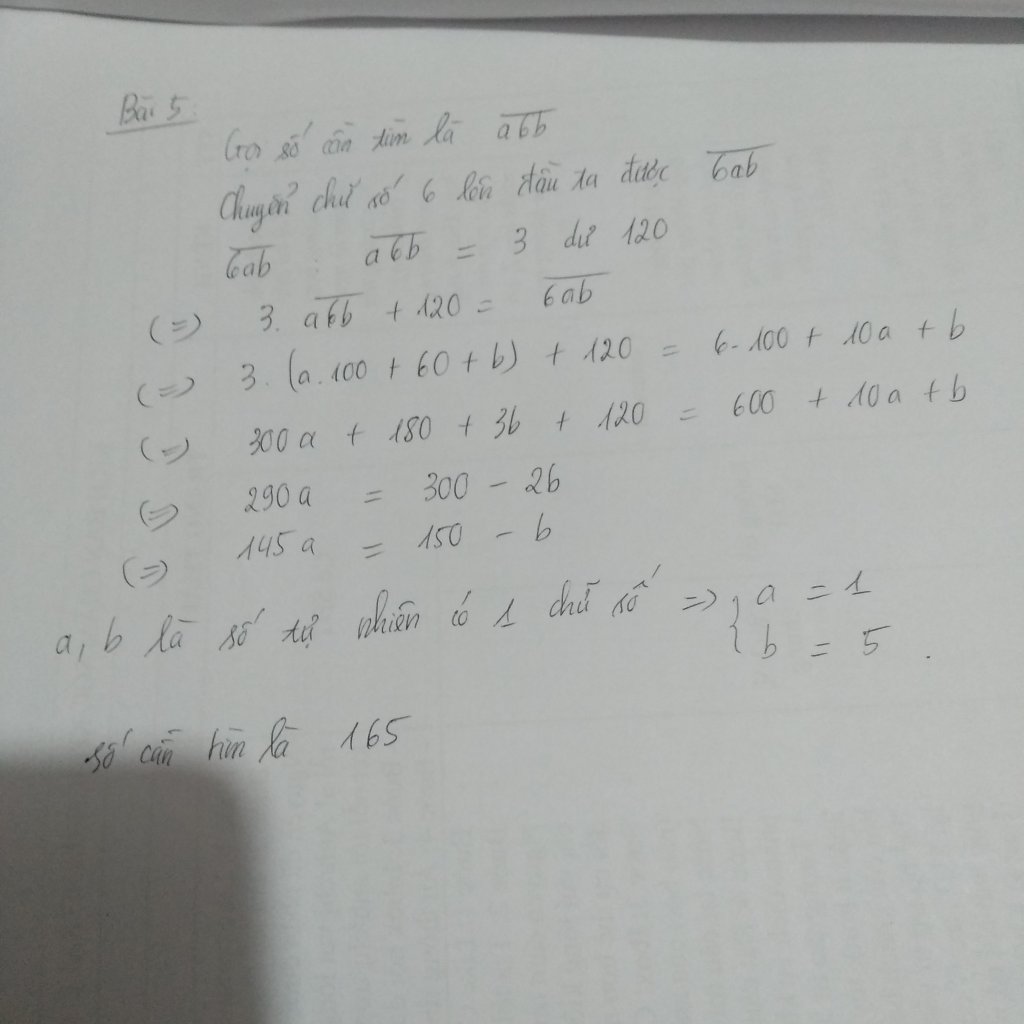 Bài 5:
Gọi số cần tìm là a6b
Chuyển chữ số 6 lên đầu ta được 6ab
6ab : a6b = 3 dư 120
(=) 3. a6b + 120 = 6ab
(=) 3. (a.100 + 60 + b) + 120 = 6.100 + 10a + b
(=) 300a + 180 + 3b + 120 = 600 + 10a + b
(=) 290a = 300 - 2b
(=) 145a = 150 - b
a, b là số tự nhiên có 1 chữ số => { a = 1
b = 5 .
số cần tìm là 165